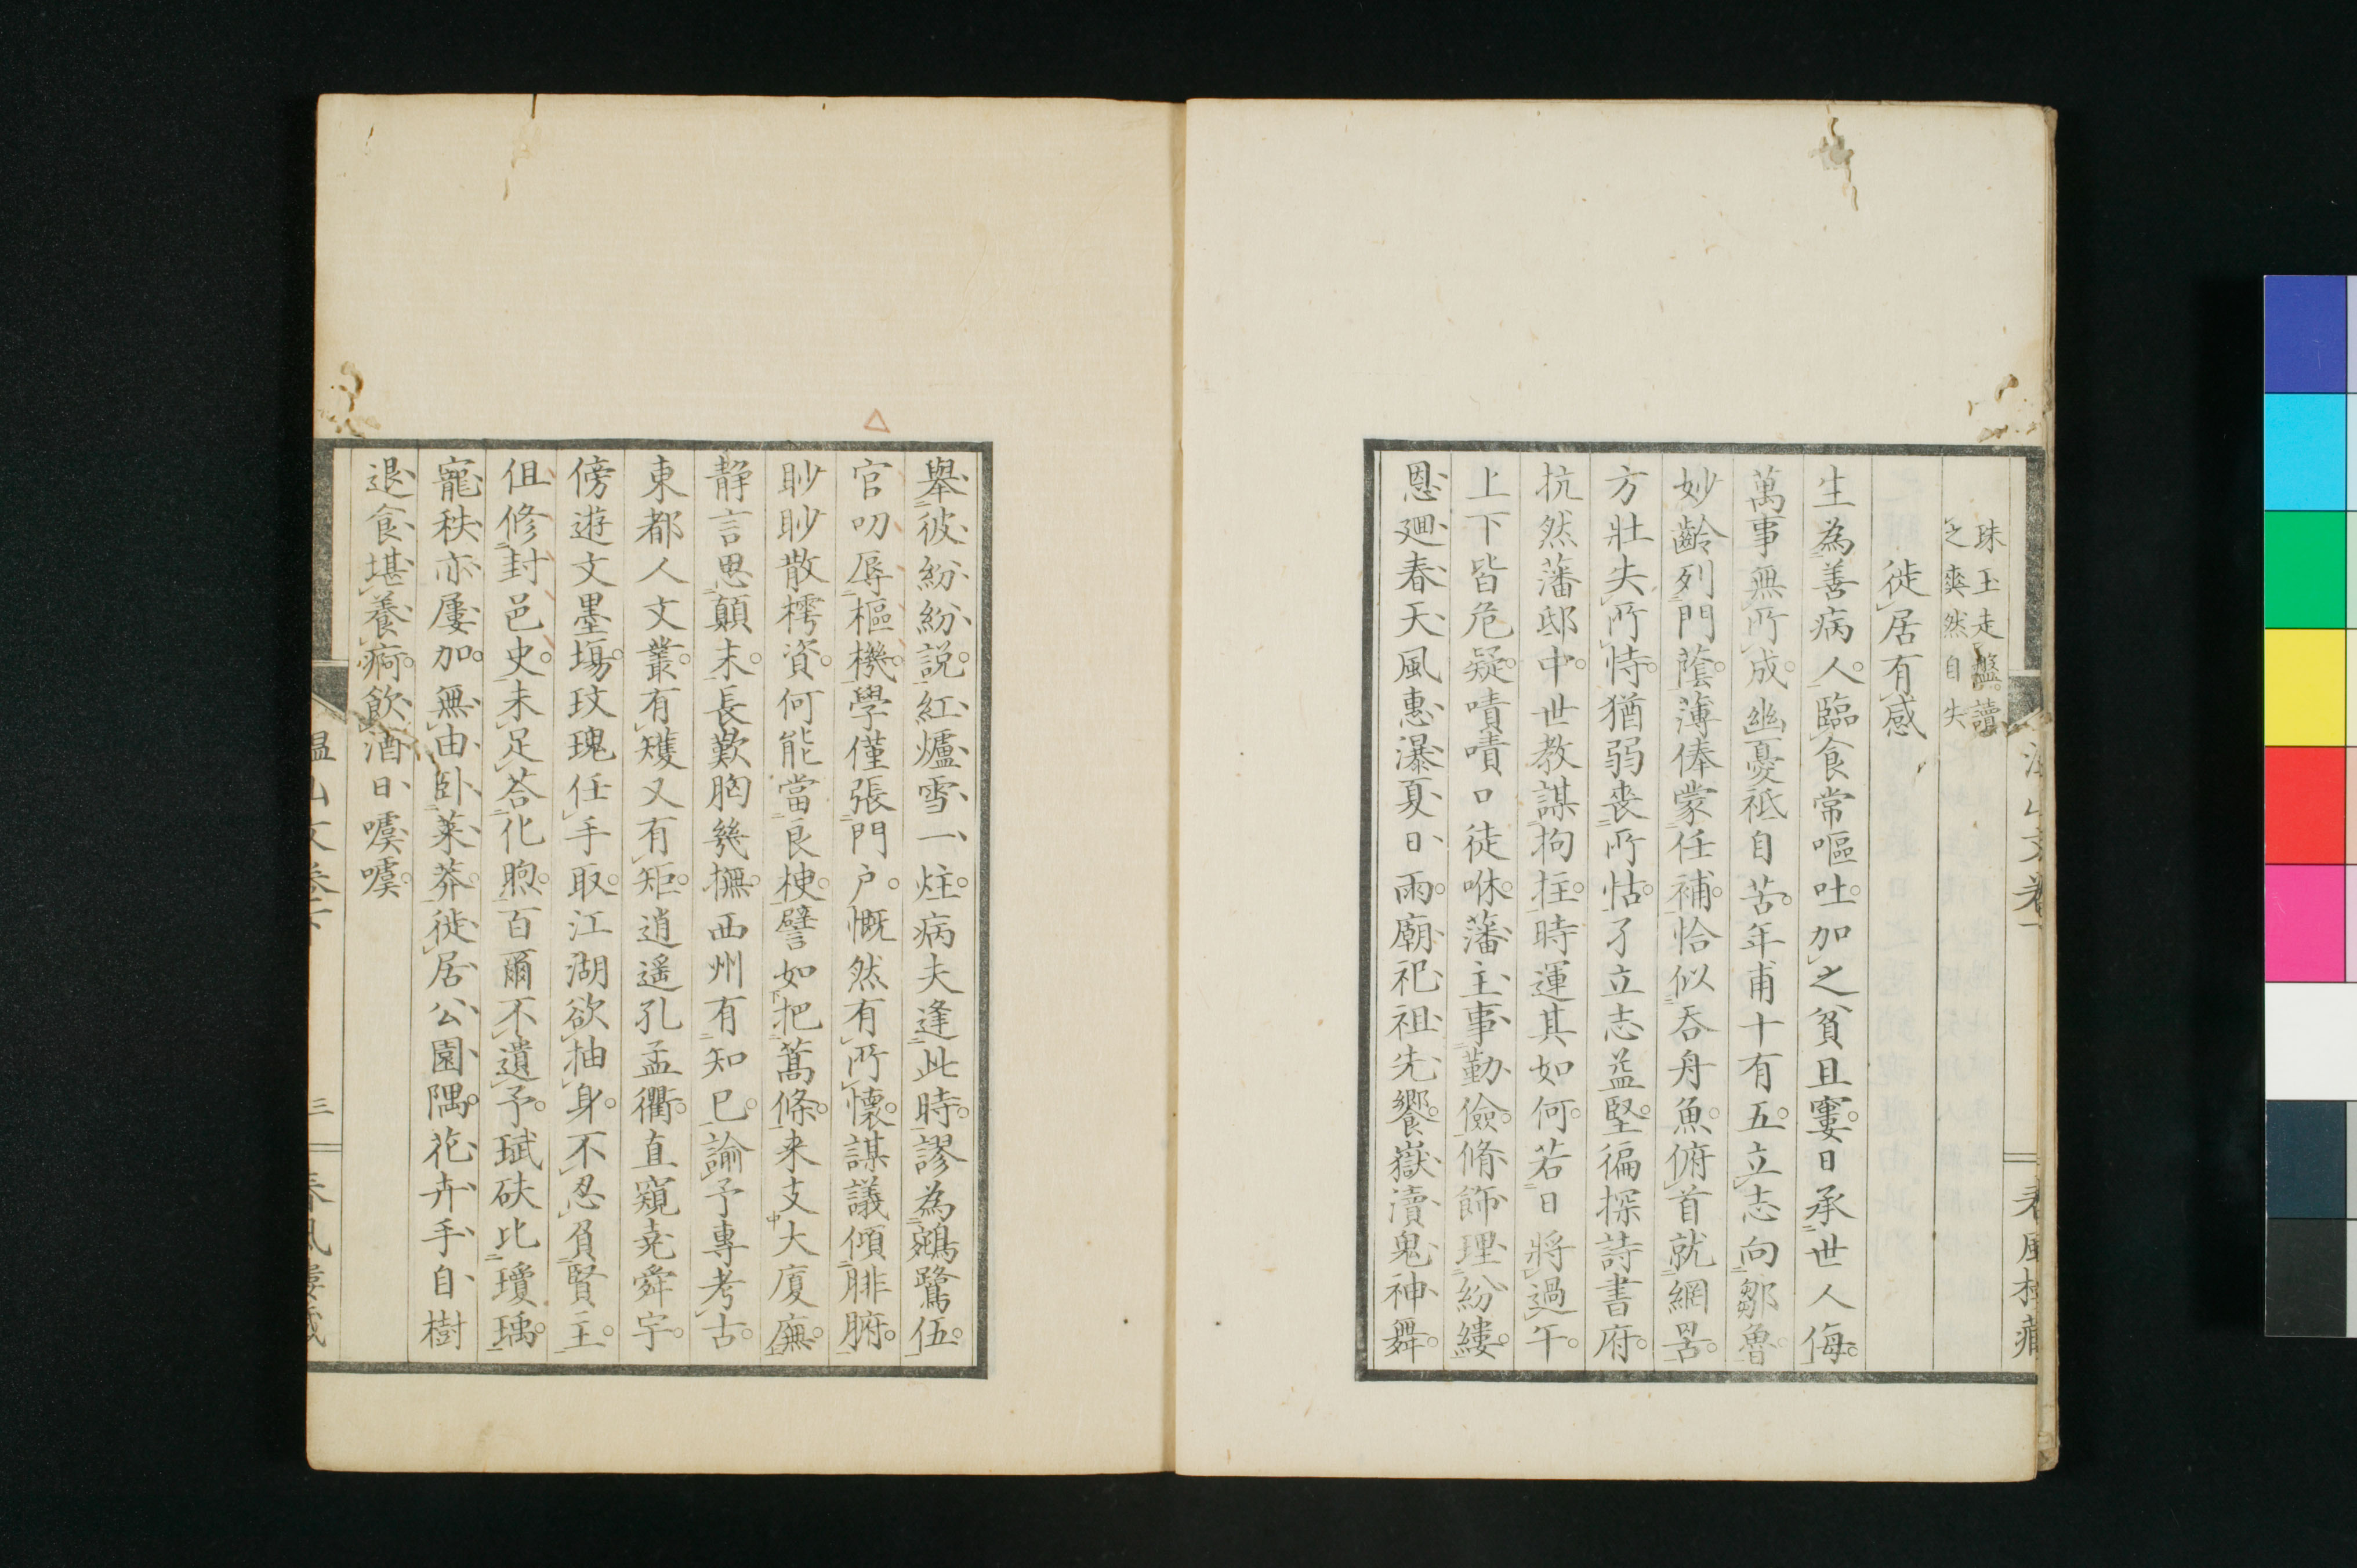 珠玉走盤。讀
之爽然自失
徙居有感
生為善病人。臨食常嘔吐。加之貧且窶。日承世人侮。
萬事無所成。幽憂祗自苦。年甫十有五。立志向鄒魯。
妙齡列門蔭。薄俸蒙任補。恰似吞舟魚。俯首就網罟。
方壯失所恃。猶弱喪所怙。孑立志益堅。徧探詩書府。
抗然藩邸中。世教謀拘拄。時運其如何。若日將過午。
上下皆危疑。嘖嘖口徒咻。藩主事勤儉。脩飾理紛縷。
恩廻春天風。惠瀑夏日雨。廟祀祖先饗。嶽瀆鬼神舞。
舉彼紛紛説。紅爐雪一炷。病夫逢此時。謬為鵷鷺伍。
官叨辱樞機。學僅張門户。慨然有所懐。謀議傾腓腑。
眇眇散樗資。何能當良楩。譬如把蒿條。来支大廈廡。
静言思顛末。長歎胸幾撫。西州有知己。諭予專考古。
東都人文叢。有矱又有矩。逍遥孔孟衢。直窺堯舜宇。
傍遊文墨塲。玫瑰任手取。江湖欲抽身。不忍負賢主。
伹修封邑史。未足荅化煦。百爾不遺予。珷砆比瓊瑀。
寵秩亦屢加。無由卧萊莽。徙居公園隅。花卉手自樹
退食堪養痾。飲酒日噳噳。
三